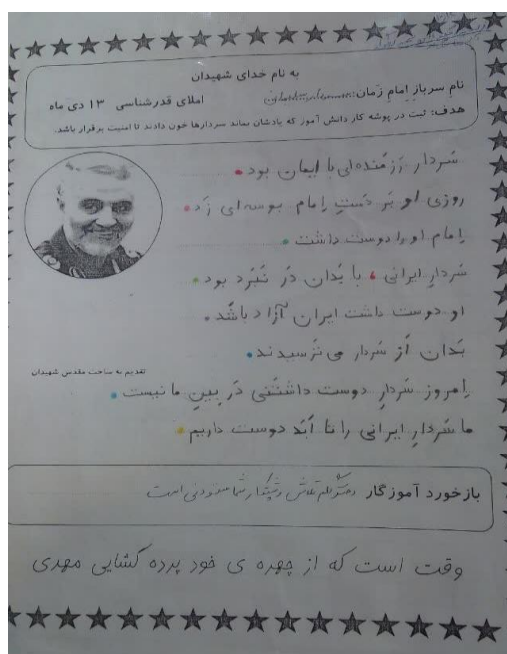 به نام خدای شهیدان
نام سرباز امام زمان:
املای قدرشناسی ۱۳ دی ماه
هدف: ثبت در پوشه کار دانش آموز که یادشان بماند سردارها خون دادند تا امنیت برقرار باشد.
سَردار رَزمَنده‌ای با ایمان بود.
روزی او بَر دَستِ اِمام بوسه‌ای زَد.
اِمام او را دوست داشت.
سَردارِ ایرانی، با بَدان دَر نَبَرد بود.
او دوست داشت ایران آزاد باشَد.
بَدان اَز سَردار می تَرسیدند.
تقدیم به ساحت مقدس شهیدان
اِمروز سَردارِ دوست داشتَنی دَر بِینِ ما نیست.
ما سَردارِ ایرانی را تا اَبَد دوست داریم.
بازخورد آموزگار
تلاش شما ستودنی است
وقت است که از چهره ی خود پرده گشایی مهدی